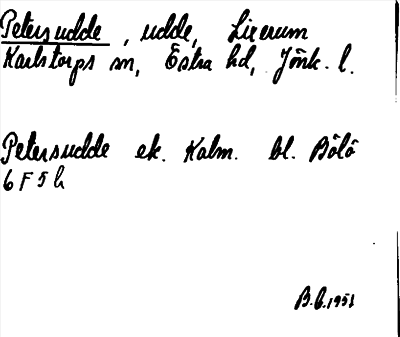 Petersudde, udde, Lixerum
Karlstorps sn, Östra hd, Jönk. l.
Petersudde ek. Kalm. bl. Bölö
6 F 5 h
B.G. 1951